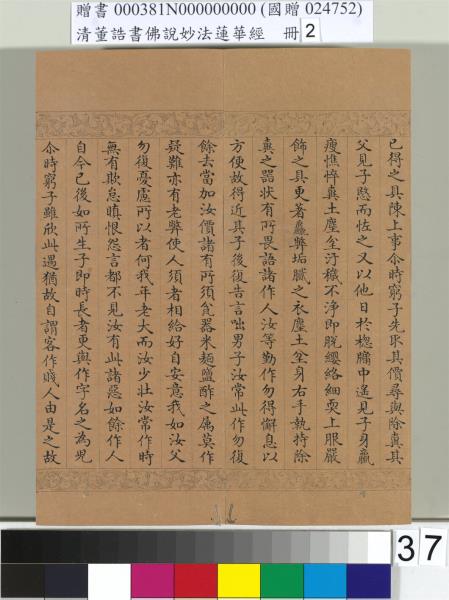 贈書 000381N000000000 (國贈 024752)
清董誥書佛說妙法蓮華經 冊 2
已得之具陳上事尒時窮子先取其價尋與除糞其
父見子愍而怪之又以他日於窓牖中遙見子身羸
瘦憔悴糞土塵坌汙穢不淨即脫纓絡細耎上服嚴
飾之具更著麤弊垢膩之衣塵土坌身右手執持除
糞之器狀有所畏語諸作人汝等勤作勿得懈息以
方便故得近其子後復告言咄男子汝常此作勿復
餘去當加汝價諸有所須瓫器米麵鹽酢之屬莫作
疑難亦有老弊使人須者相給好自安意我如汝父
勿復憂慮所以者何我年老大而汝少壯汝常作時
無有欺怠瞋恨怨言都不見汝有此諸惡如餘作人
自今已後如所生子即時長者更與作字名之為兒
尒時窮子雖欣此遇猶故自謂客作賤人由是之故
37